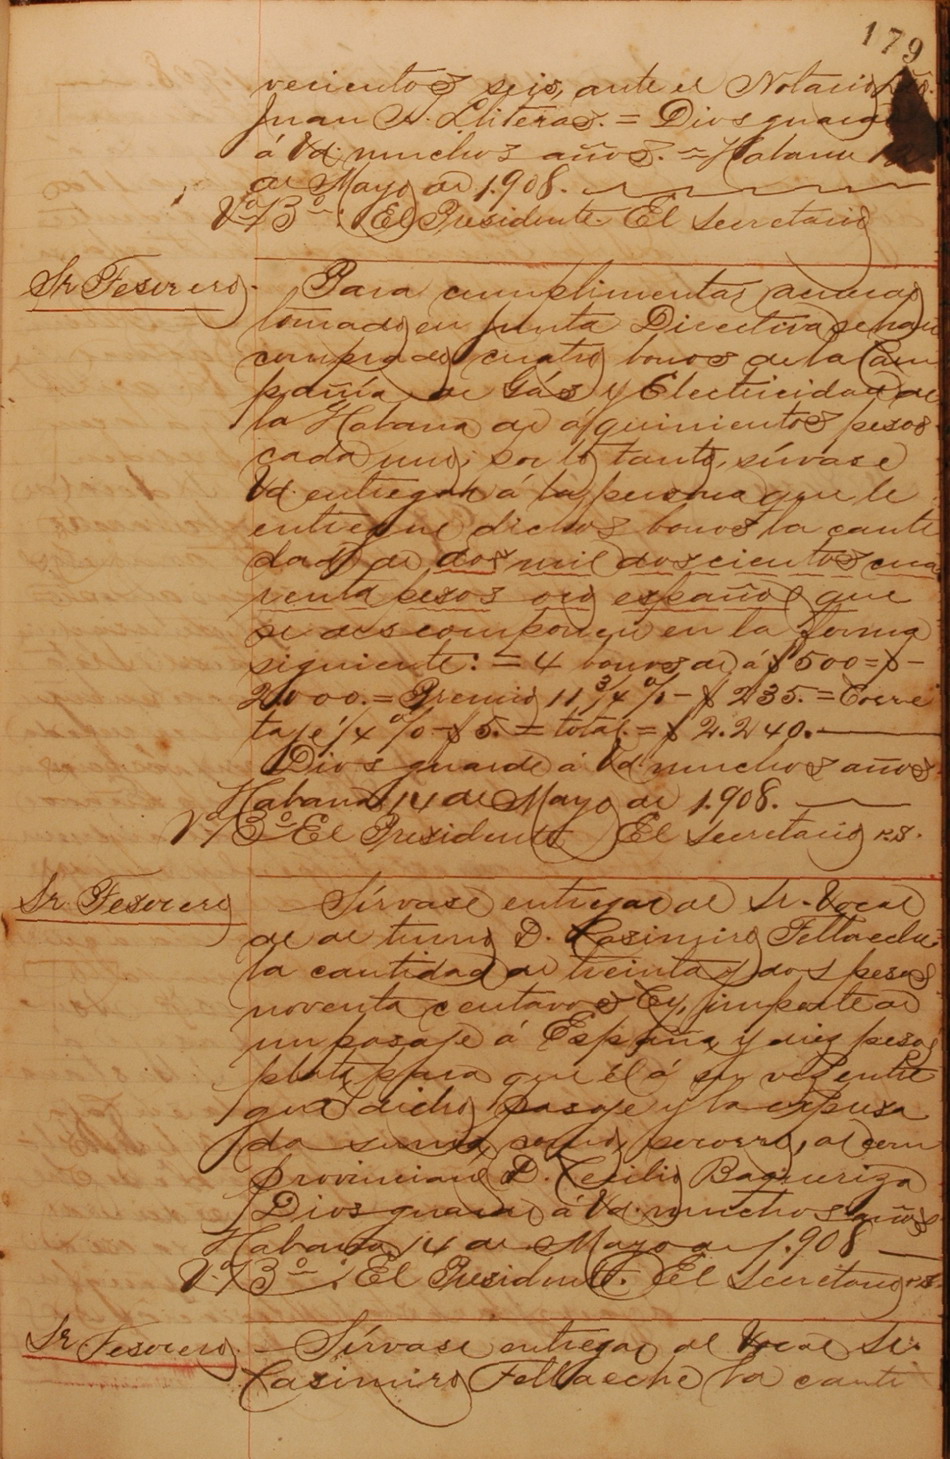 179
vecientos seis, ante el Notario Ldo.
Juan A. Lliteras. = Dios guarde
á Vd. muchos años. = Habana
de Mayo de 1.908.
Vº Bº: El Presidente El Secretario
Sr Tesorero. Para cumplimentar acuerdo
tomado en Junta Directiva se han
comprado cuatro bonos de la Com
pañía de Gás y Electricidad de
la Habana de á quinientos pesos
cada uno; por lo tanto, sírvase
Vd. entregar á la persona que le
entregue dichos bonos la canti
dad de dos mil doscientos cua
renta pesos oro español que
se descomponen en la forma
siguiente: = 4 bonos de á $500 = $-
2.000. = Premio 11 3/4 % - $ 235. = Corre
taje 1/4 % - $ 5. = total = $ 2.240.
Dios guarde á Vd. muchos años
Habana 14 de Mayo de 1.908.
Vº Bº El Presidente El Secretario P.S.
Sr. Tesorero Sírvase entregar al Sr. Vocal
de de turno D. Casimiro Fellaeche
la cantidad de treinta y dos pesos
noventa centavos Cy, importe de
un pasaje á España y diez pesos
plata para que él á su vez entre
gue dicho pasaje y la expresa
da suma, como socorro, al com
provinciano D. Cecilio Baquriza
Dios guarde á Vd. muchos años
Habana 14 de Mayo de 1.908
Vº Bº: El Presidente. El Secretario P.S.
Sr Tesorero. Sírvase entregar al Vocal Sr.
Casimiro Fellaeche la canti